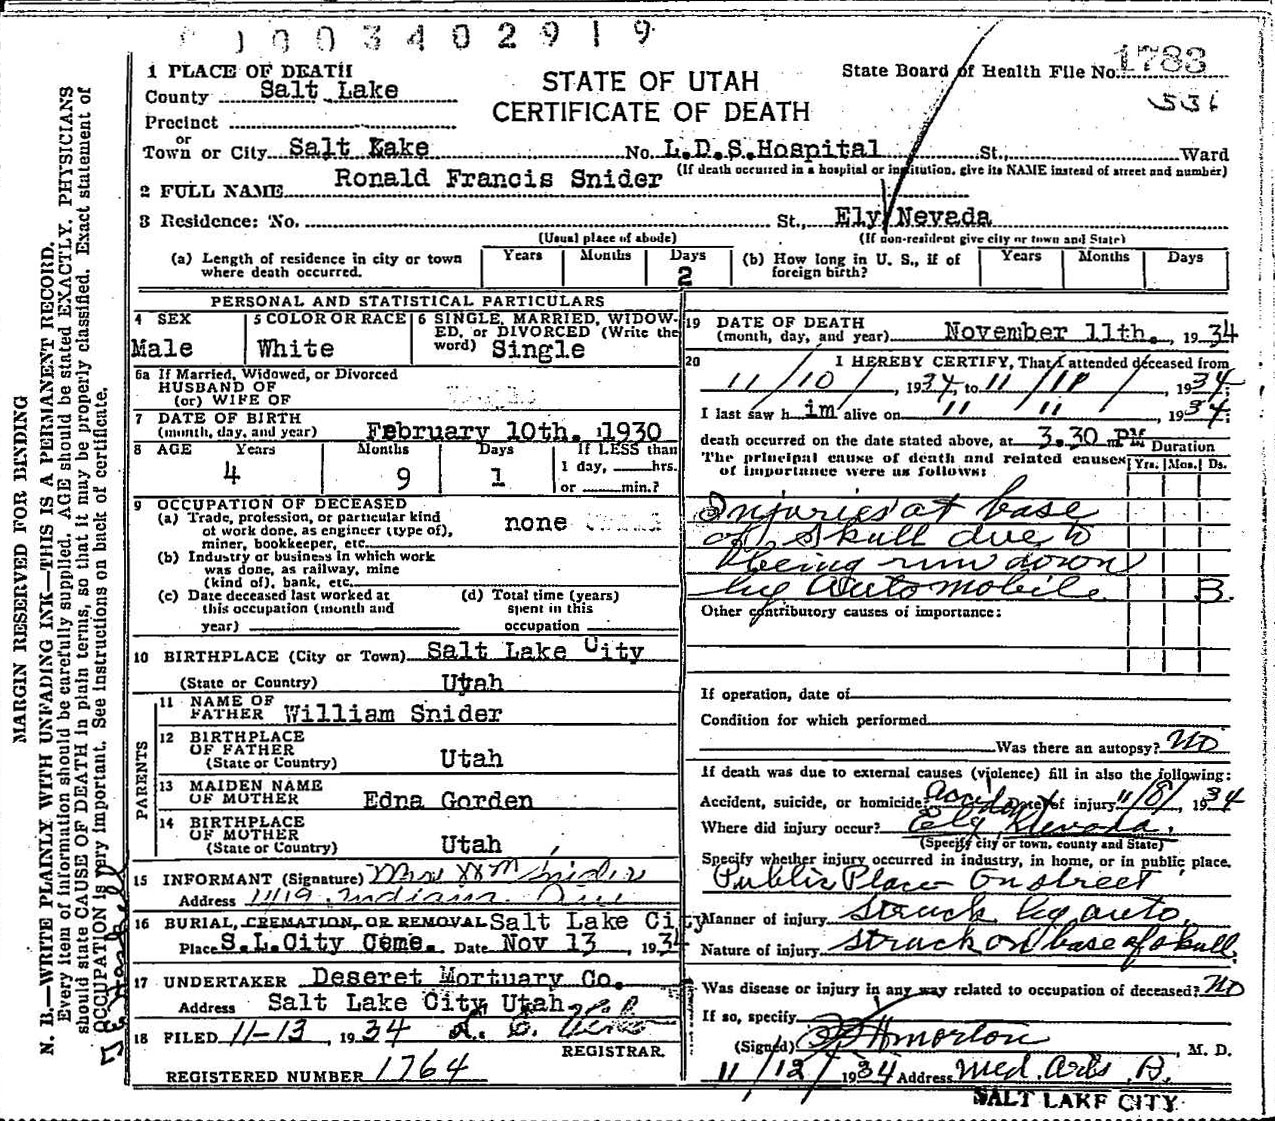 1003402919
1783
536
1 PLACE OF DEATH
County Salt Lake
Precinct
or
Town or City Salt Kake No. L.D.S.Hospital St., Ward
STATE OF UTAH
CERTIFICATE OF DEATH
State Board of Health File No.
(If death occurred in a hospital or institution, give its NAME instead of street and number)
2 FULL NAME Ronald Francis Snider
3 Residence: No. St., Ely Nevada
(Usual place of abode) (If non-resident give city or town and State)
(a) Length of residence in city or town where death occurred. Years Months Days 2
(b) How long in U. S., if of foreign birth? Years Months Days
PERSONAL AND STATISTICAL PARTICULARS
4 SEX Male
5 COLOR OR RACE White
6 SINGLE, MARRIED, WIDOWED, or DIVORCED (Write the word) Single
6a If Married, Widowed, or Divorced
HUSBAND OF
(or) WIFE OF
7 DATE OF BIRTH
(month, day, and year) February 10th. 1930
8 AGE Years 4 Months 9 Days 1
If LESS than
1 day, hrs.
or min.?
9 OCCUPATION OF DECEASED
(a) Trade, profession, or particular kind
of work done, as engineer (type of),
miner, bookkeeper, etc. none
(b) Industry or business in which work
was done, as railway, mine
(kind of), bank, etc.
(c) Date deceased last worked at
this occupation (month and
year)
(d) Total time (years)
spent in this
occupation
10 BIRTHPLACE (City or Town) Salt Lake City
(State or Country) Utah
PARENTS
11 NAME OF
FATHER William Snider
12 BIRTHPLACE
OF FATHER
(State or Country) Utah
13 MAIDEN NAME
OF MOTHER Edna Gorden
14 BIRTHPLACE
OF MOTHER
(State or Country) Utah
15 INFORMANT (Signature) Mrs Wm Snider
Address 1419 Indiana Ave
16 BURIAL, CREMATION, OR REMOVAL Salt Lake City
Place S.L.City Ceme. Date Nov 13, 1934
17 UNDERTAKER Deseret Mortuary Co.
Address Salt Lake City Utah
18 FILED 11-13, 1934
REGISTRAR.
REGISTERED NUMBER 1764
19 DATE OF DEATH
(month, day, and year) November 11th., 1934
20 I HEREBY CERTIFY, That I attended deceased from
11/10, 1934, to 11/11, 1934;
I last saw him alive on 11 11, 1934;
death occurred on the date stated above, at 3.30 m. PM
The principal cause of death and related causes
of importance were as follows:
Duration
Yrs. Mos. Ds.
Injuries at base
of skull due to
being run down
by Automobile 3.
Other contributory causes of importance:
If operation, date of
Condition for which performed
Was there an autopsy? No
If death was due to external causes (violence) fill in also the following:
Accident, suicide, or homicide? accident Date of injury 11/8/, 1934
Where did injury occur? Ely Nevada.
(Specify city or town, county and State)
Specify whether injury occurred in industry, in home, or in public place.
Public Place On street
Manner of injury struck by auto.
Nature of injury struck on base of skull.
Was disease or injury in any way related to occupation of deceased? No
If so, specify
(Signed) Morton, M. D.
11/12/1934 Address Med. Arts B.
SALT LAKE CITY
MARGIN RESERVED FOR BINDING
N. B.—WRITE PLAINLY WITH UNFADING INK—THIS IS A PERMANENT RECORD.
Every item of information should be carefully supplied. AGE should be stated EXACTLY. PHYSICIANS
should state CAUSE OF DEATH in plain terms, so that it may be properly classified. Exact statement of
OCCUPATION is very important. See instructions on back of certificate.